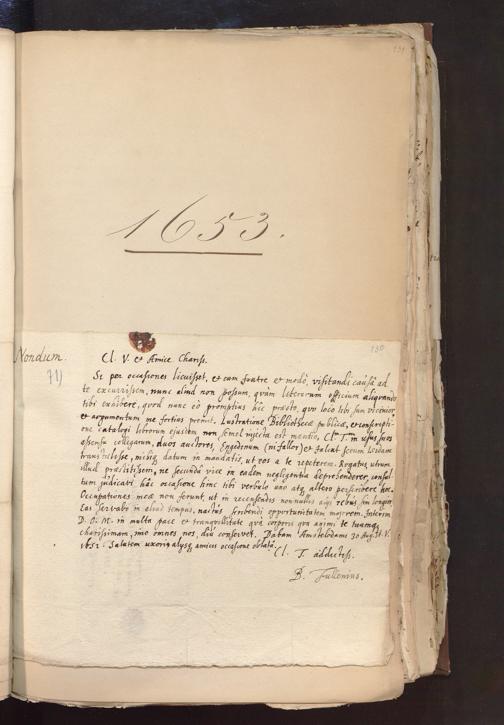 131
1653.
130
Nondum.
71)
Cl. V. et Amice Chariss.
Si per occasiones licuisset, et cum fratre et modò, visitandi causâ ad
te excurrissem, nunc aliud non possum, quàm literarum officium aliquando
tibi exhibere, quod nunc eò promptius hic praesto, quo loco tibi sum vicinior,
et argumentum me fortius premit. Lustratione Bibliothecae publicae, et conscripti-
one Catalogi librorum ejusdem non semel injecta est mentio, Cl. T. in usus suos
assensu collegarum, duos auctores, Eugedinum (ni fallor) et
transtulisse, mihique datum in mandatis, ut eos a te repeterem. Rogatus utrum
illud praestitissem, ne secundâ vice in eadem negligentia deprehenderer, consul-
tum judicavi hâc occasione hinc tibi verbulo uno atque altero perscribere hoc.
Occupationes meae non ferunt, ut in recensendis nonnullis aliis rebus sim longior
Eas servabo in aliud tempus, nactus scribendi opportunitatem majorem. Interim
D. O. M. in multa pace et tranquillitate quà corporis quà animi te tuamque
charissimam, imo omnes nos, diu conservet. Dabam Amstelodami 30 August. V.
1652. Salutem uxori alijsque amicis occasione oblatâ.
Cl. T. addictiss.
B. Fullenius.